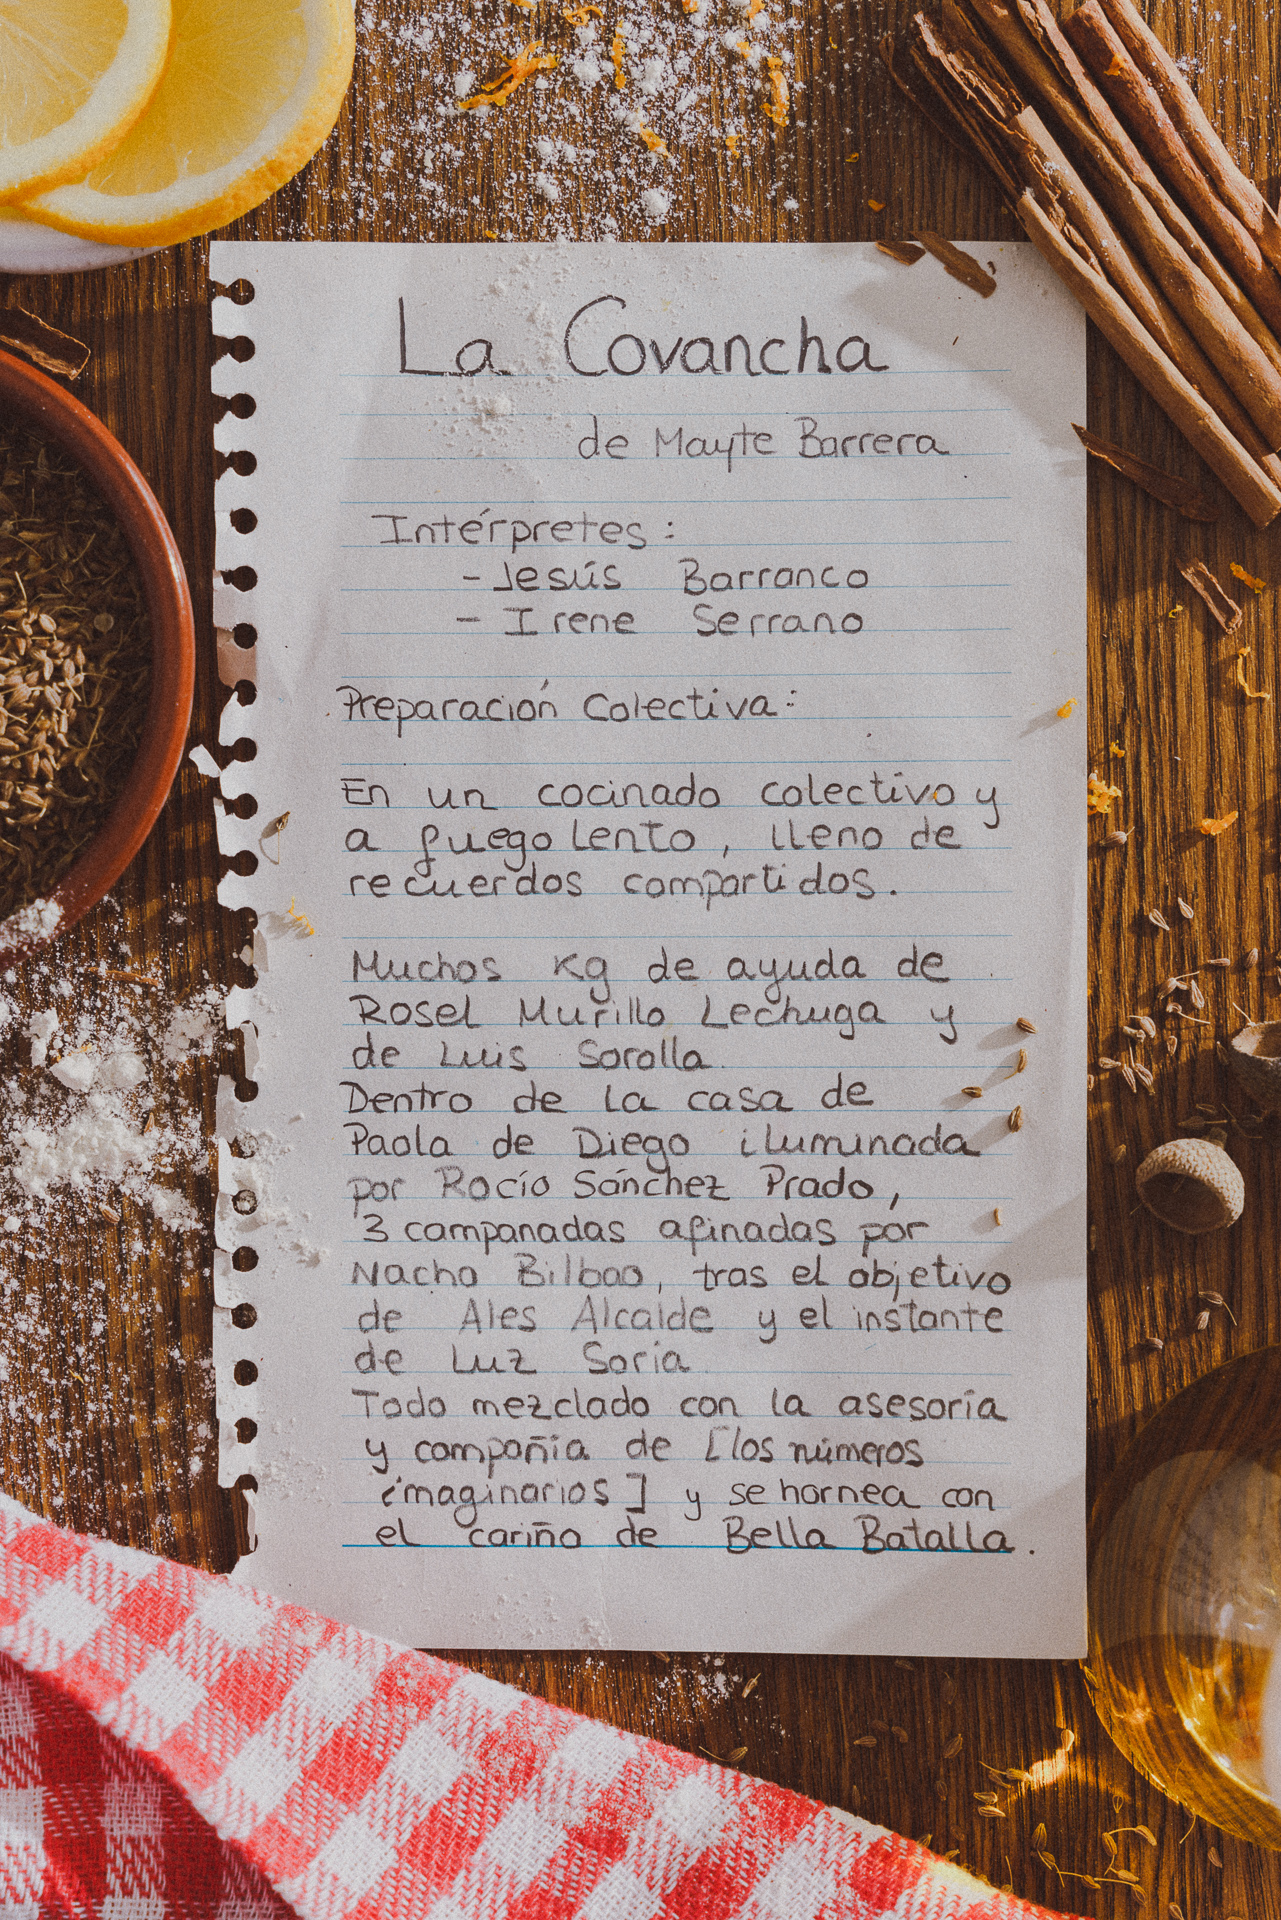 La Covancha
de Mayte Barrera
Intérpretes:
- Jesús Barranco
- Irene Serrano
Preparación Colectiva:
En un cocinado colectivo y
a fuego lento, lleno de
recuerdos compartidos.
Muchos kg de ayuda de
Rosel Murillo Lechuga y
de Luis Sorolla.
Dentro de la casa de
Paola de Diego iluminada
por Rocío Sánchez Prado,
3 campanadas afinadas por
Nacho Bilbao, tras el objetivo
de Ales Alcalde y el instante
de Luz Soria.
Todo mezclado con la asesoría
y compañía de [los números
imaginarios] y se hornea con
el cariño de Bella Batalla.